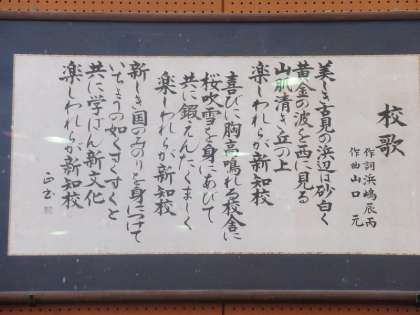 校歌
作詞 浜嶋辰雨
作曲 山口 元
美しき吉見の浜辺は砂白く
黄金の波を西に見る
山肌清き丘の上
楽しわれらが新知校
喜びに胸高鳴れる校舎に
桜吹雪を身にあびて
共に鍛えんたくましく
楽しわれらが新知校
新しき国のみのりを身につけて
いちょうの如くすくすくと
共に学ばん新文化
楽しわれらが新知校